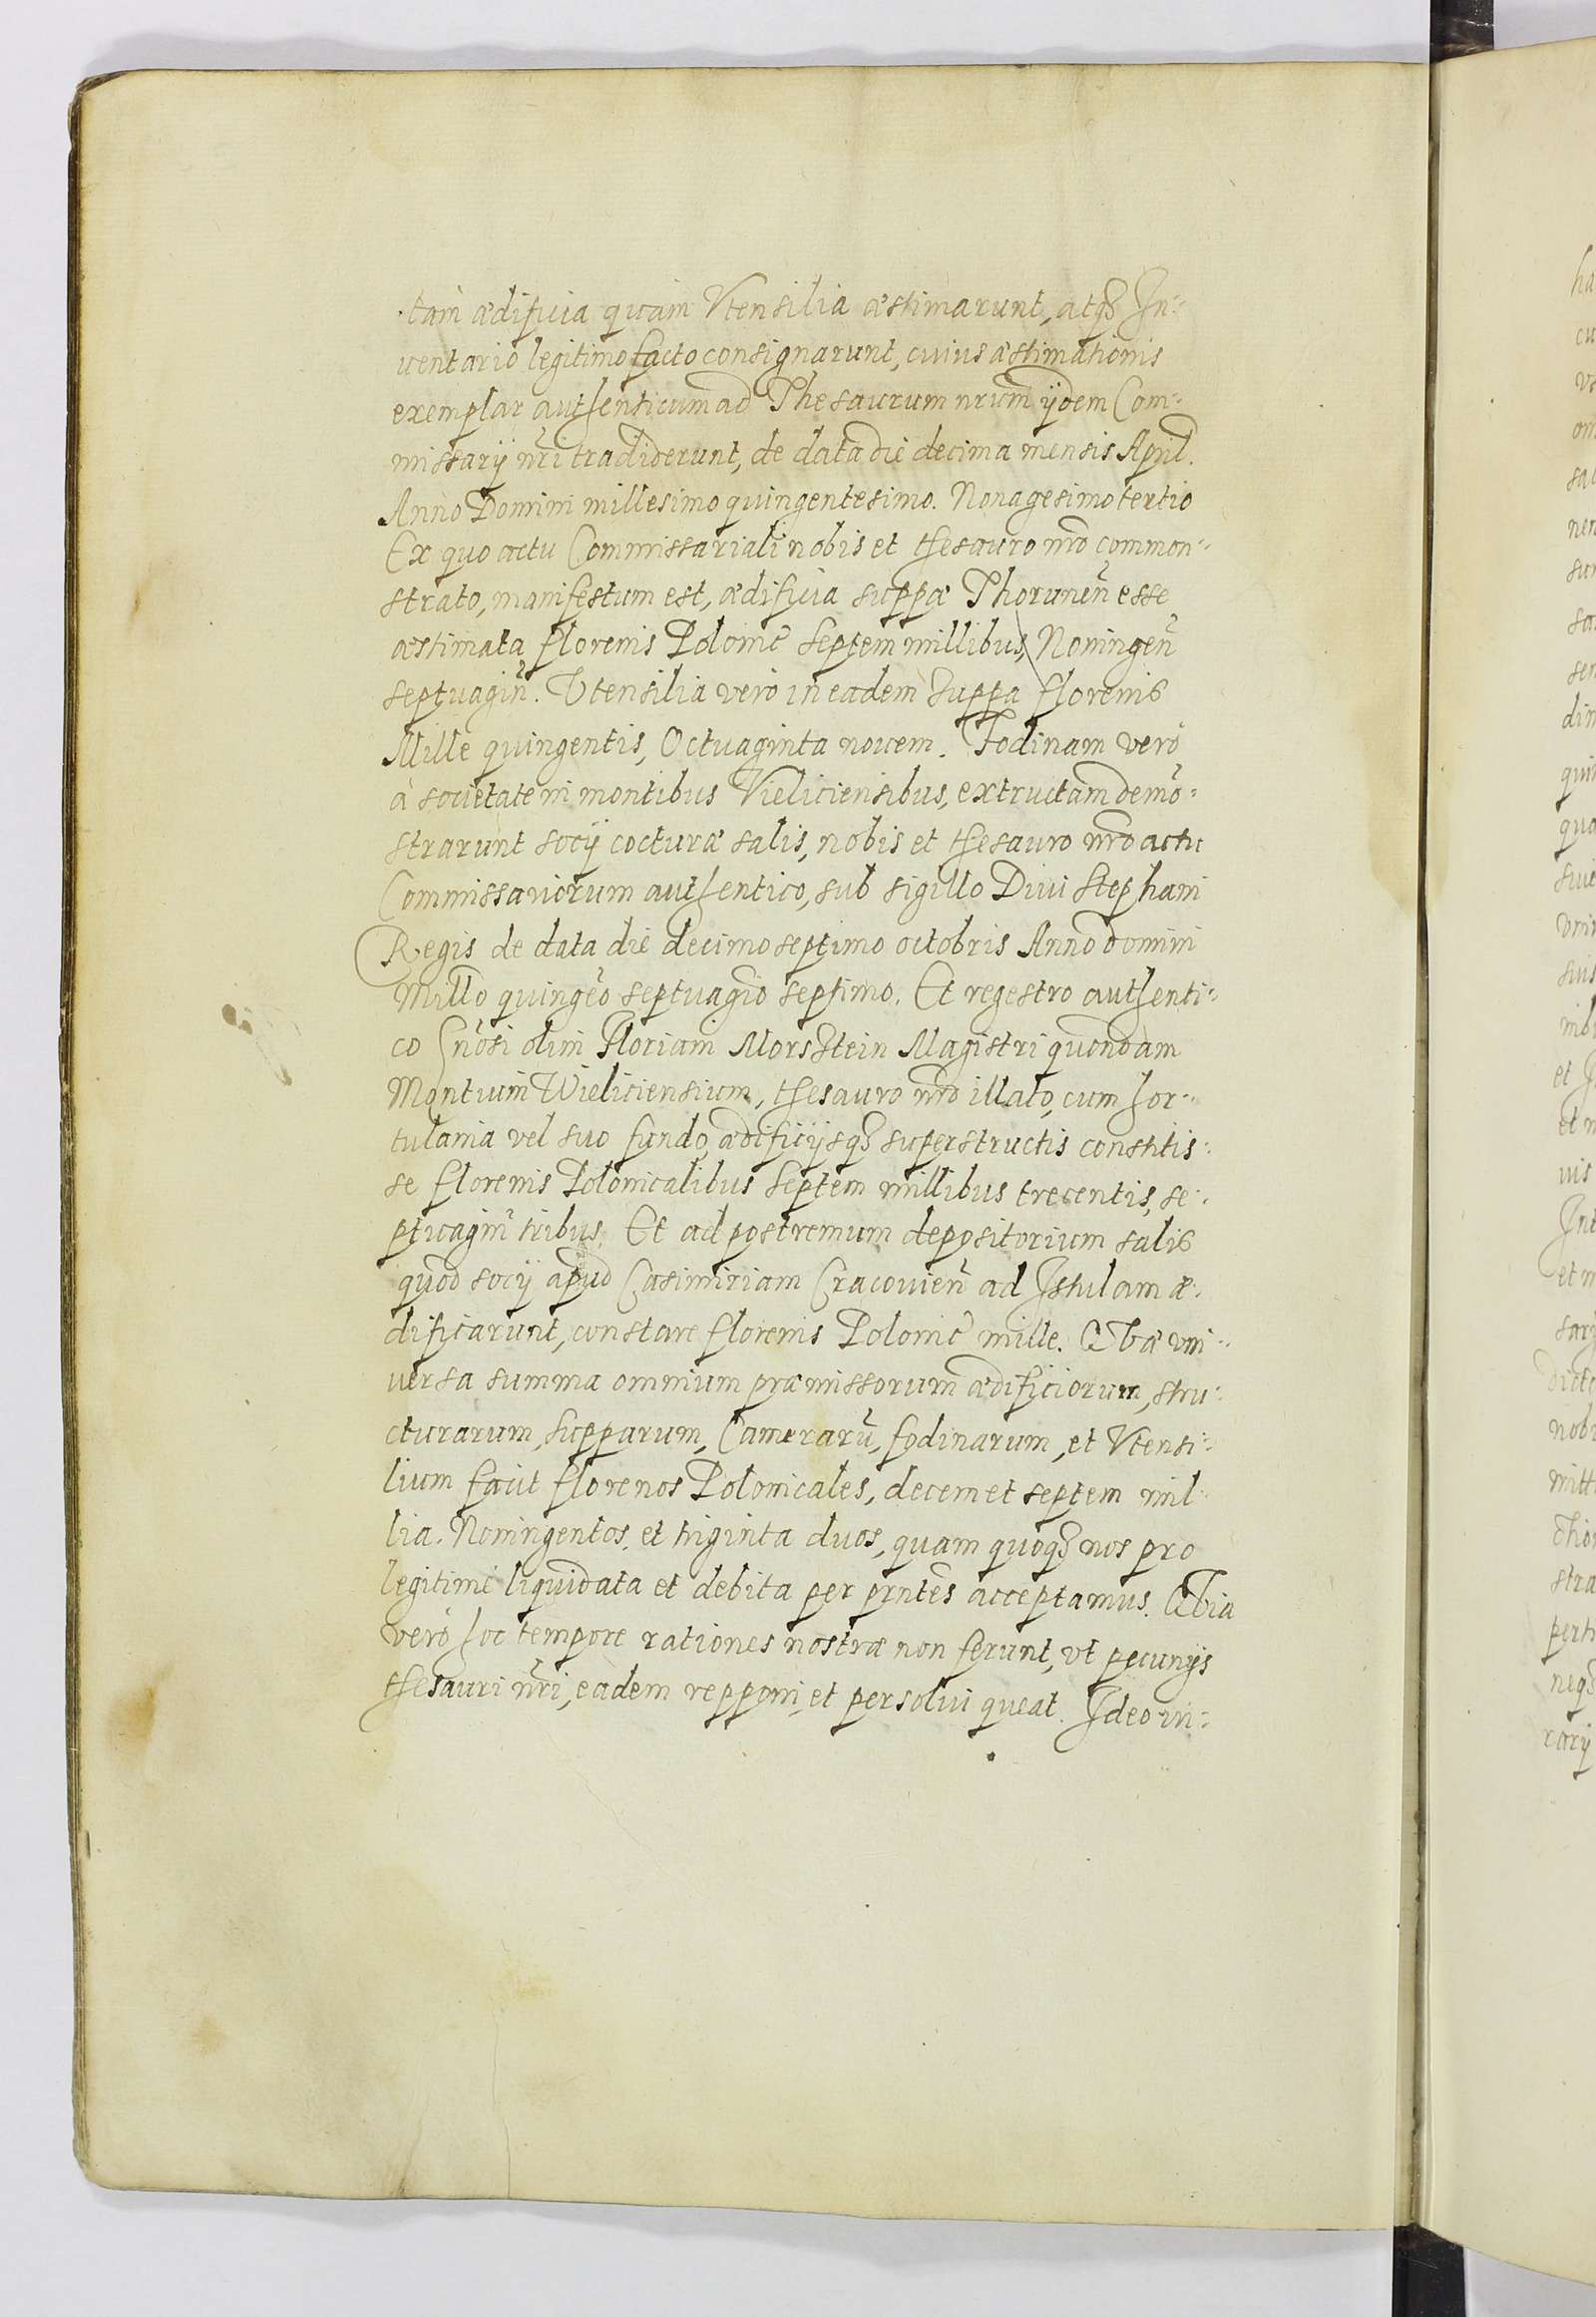 tam ædificia quàm Vtensilia æstimarunt, atqȝ In-
uentario legitimo facto consignarunt, cuius æstimationis
exemplar authenticum ad Thesaurum nrum ijdem Com-
missarij nri tradiderunt, de data die decima mensis April.
Anno Domini millesimo quingentesimo. Nonagesimo tertio
Ex quo actu Commissariali nobis et thesauro nro common-
strato, manifestum est, ædificia suppæ Thorunen esse
æstimata florenis Polonic septem millibus, Noningen
septuagin. Vtensilia vero in eadem suppa florenis
Mille quingentis, Octuaginta nouem. Fodinam verò
à societate in montibus Vieliciensibus, extructam demō-
strarunt socij cocturæ salis, nobis et thesauro nro actu
Commissariorum authentico, sub sigillo Diui Stephani
Regis de data die decimo septimo octobris Anno domini
Millo quingeo septuagio septimo. Et regestro authenti-
co Gnosi olim Floriani Morsstein Magistri quondam
Montium Wieliciensium, thesauro nro illato, cum hor-
tulania vel suo fundo, ædificijsqȝ superstructis constitis-
se florenis Polonicalibus septem millibus trecentis, se-
ptuagin tribus. Et ad postremum depositorium salis
quod socij apud Casimiriam Cracouien ad Istulam æ-
dificarunt, constare florenis Polonic mille. Quæ vni-
uersa summa omnium præmissorum ædificiorum, stru-
cturarum, supparum, Camerarū, fodinarum, et Vtensi-
lium facit florenos Polonicales, decem et septem mil-
lia. Noningentos, et triginta duos, quam quoqȝ nos pro
legitimè liquidata et debita per pntes acceptamus. Quia
verò hoc tempore rationes nostræ non ferunt, vt pecunijs
thesauri nri, eadem repponi, et persolui queat. Ideo in-